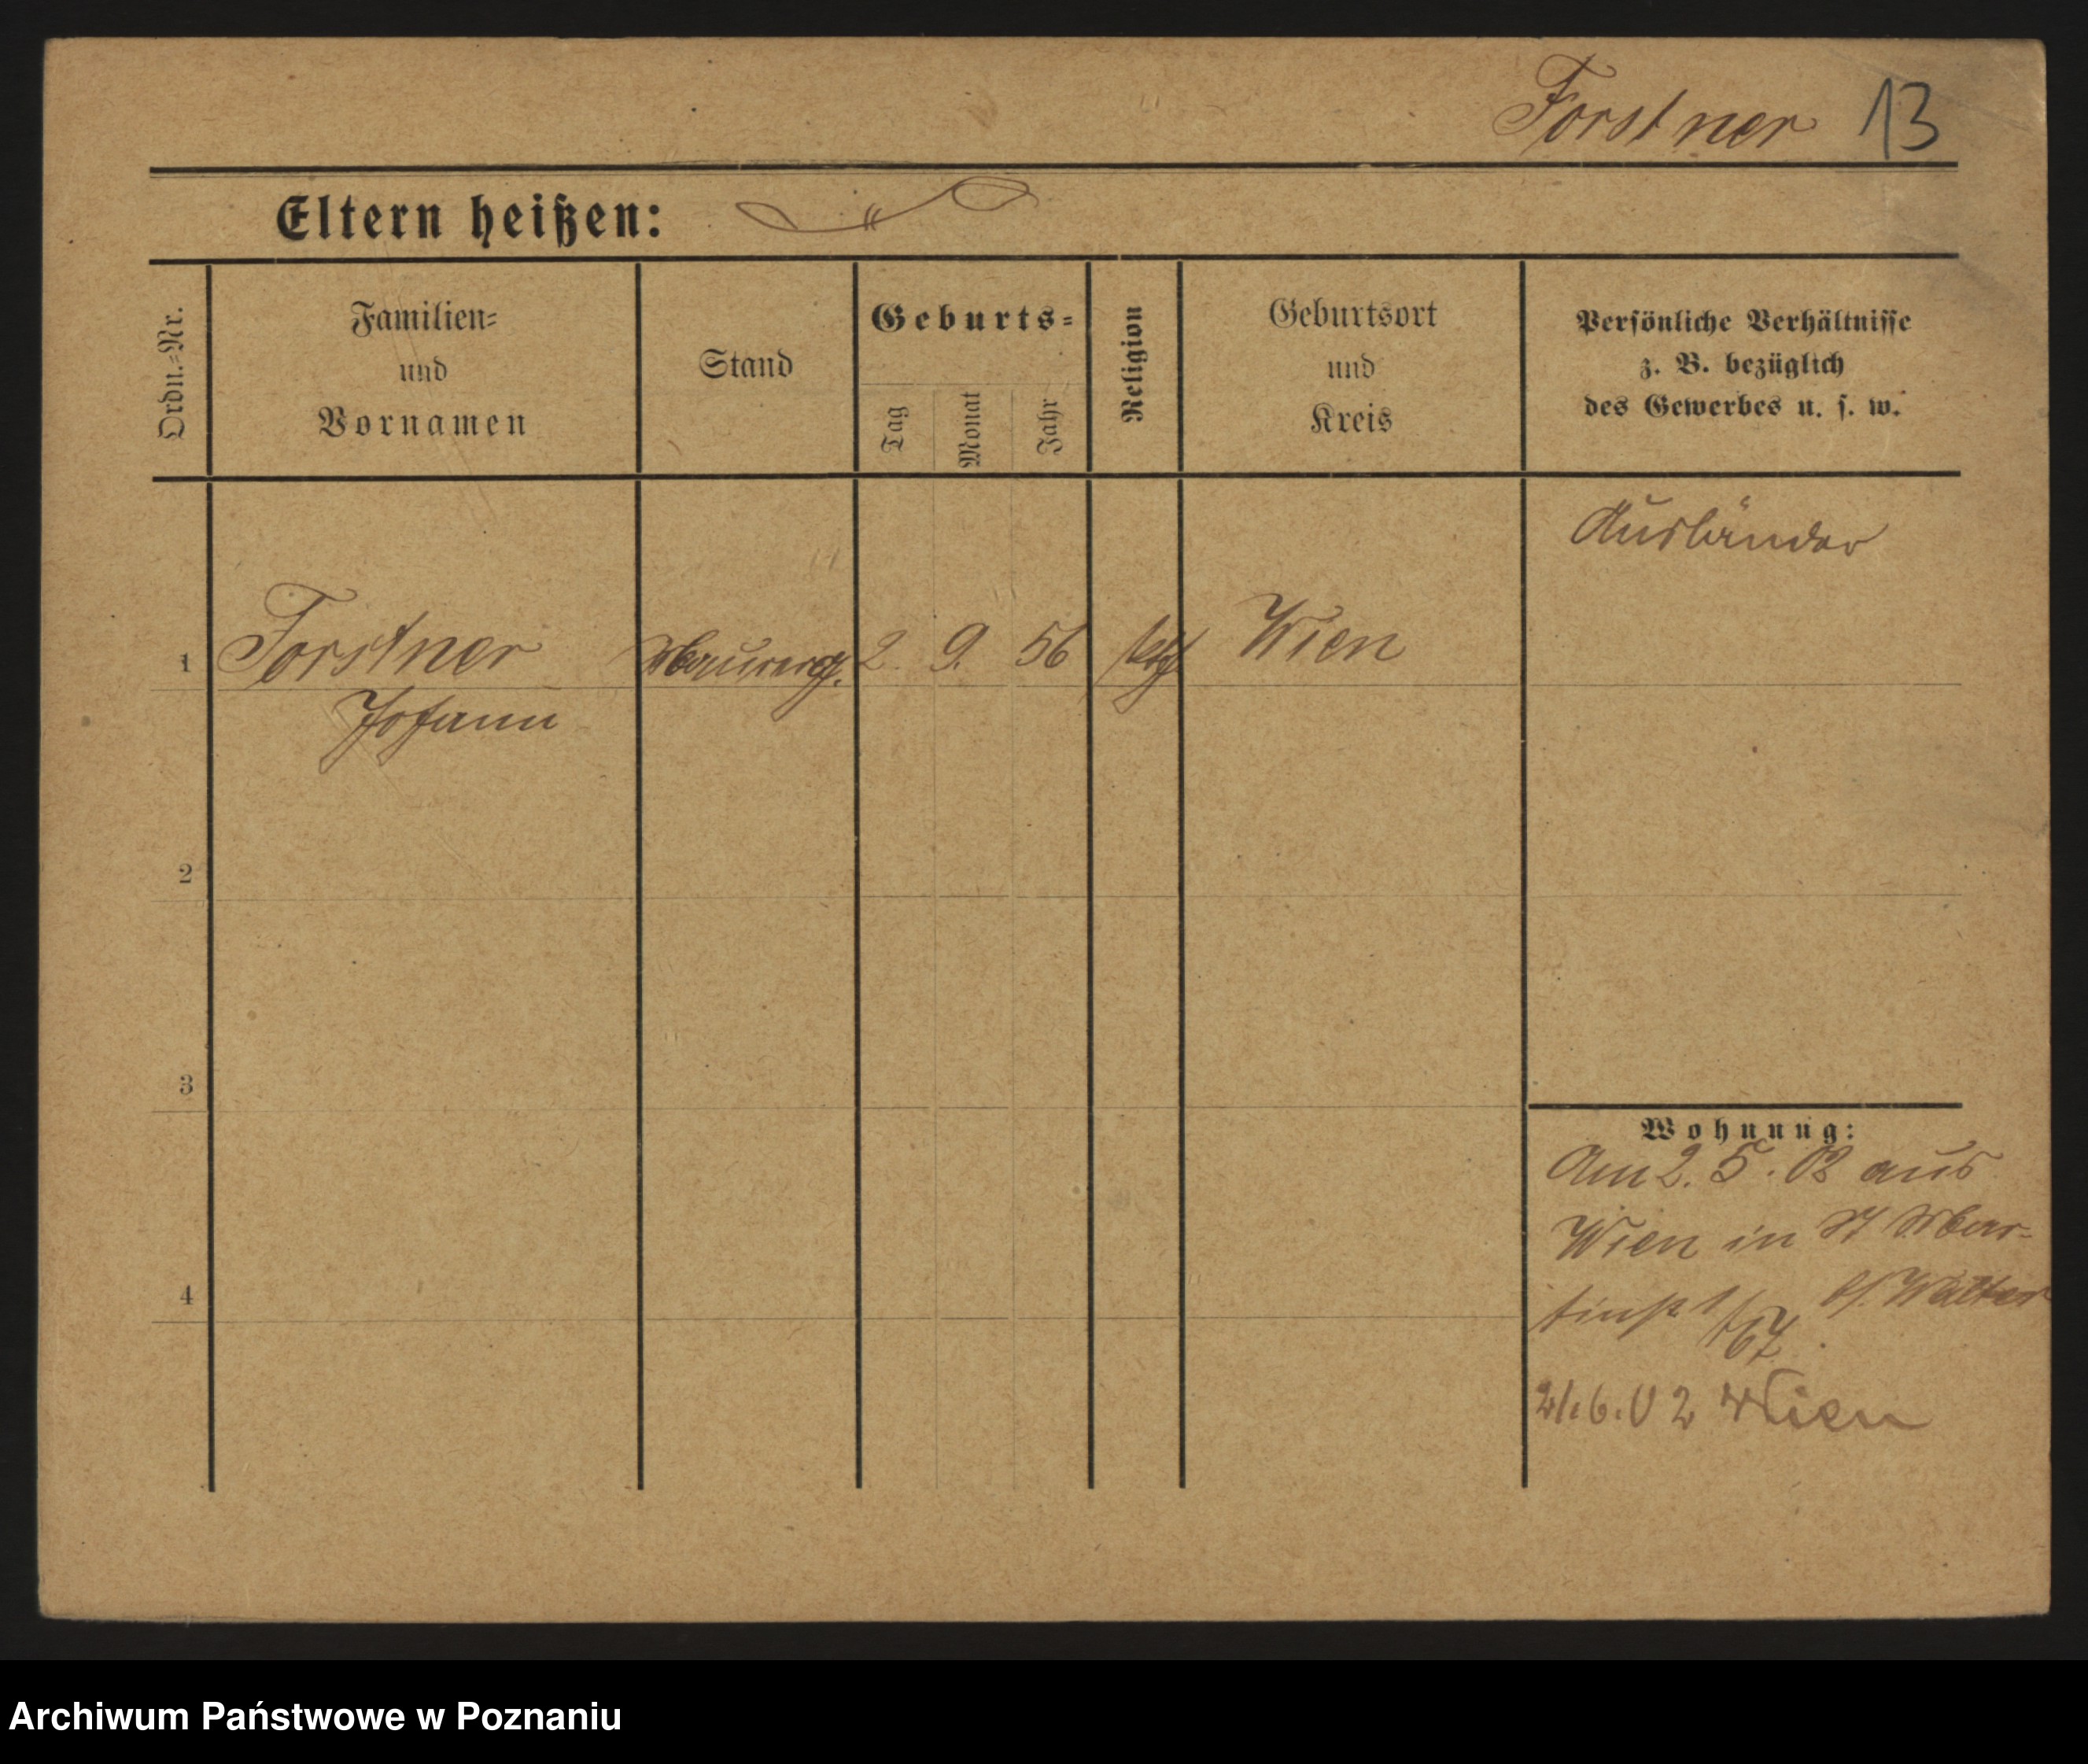 Forstner 13
Eltern heißen: "
Ordn.=Nr.
Familien=
und
Vornamen
Stand
Geburts=
Tag
Monat
Jahr
Religion
Geburtsort
und
Kreis
Persönliche Verhältnisse
z. B. bezüglich
des Gewerbes u. s. w.
Ausländer
1 Forstner Maurerg. 2. 9. 56 kth Wien
Johann
2
3
4
Wohnung:
Am 2. 5. 02 aus
Wien in St Mar-
tinstr 67 Walter
21.6.02 Wien
Archiwum Państwowe w Poznaniu